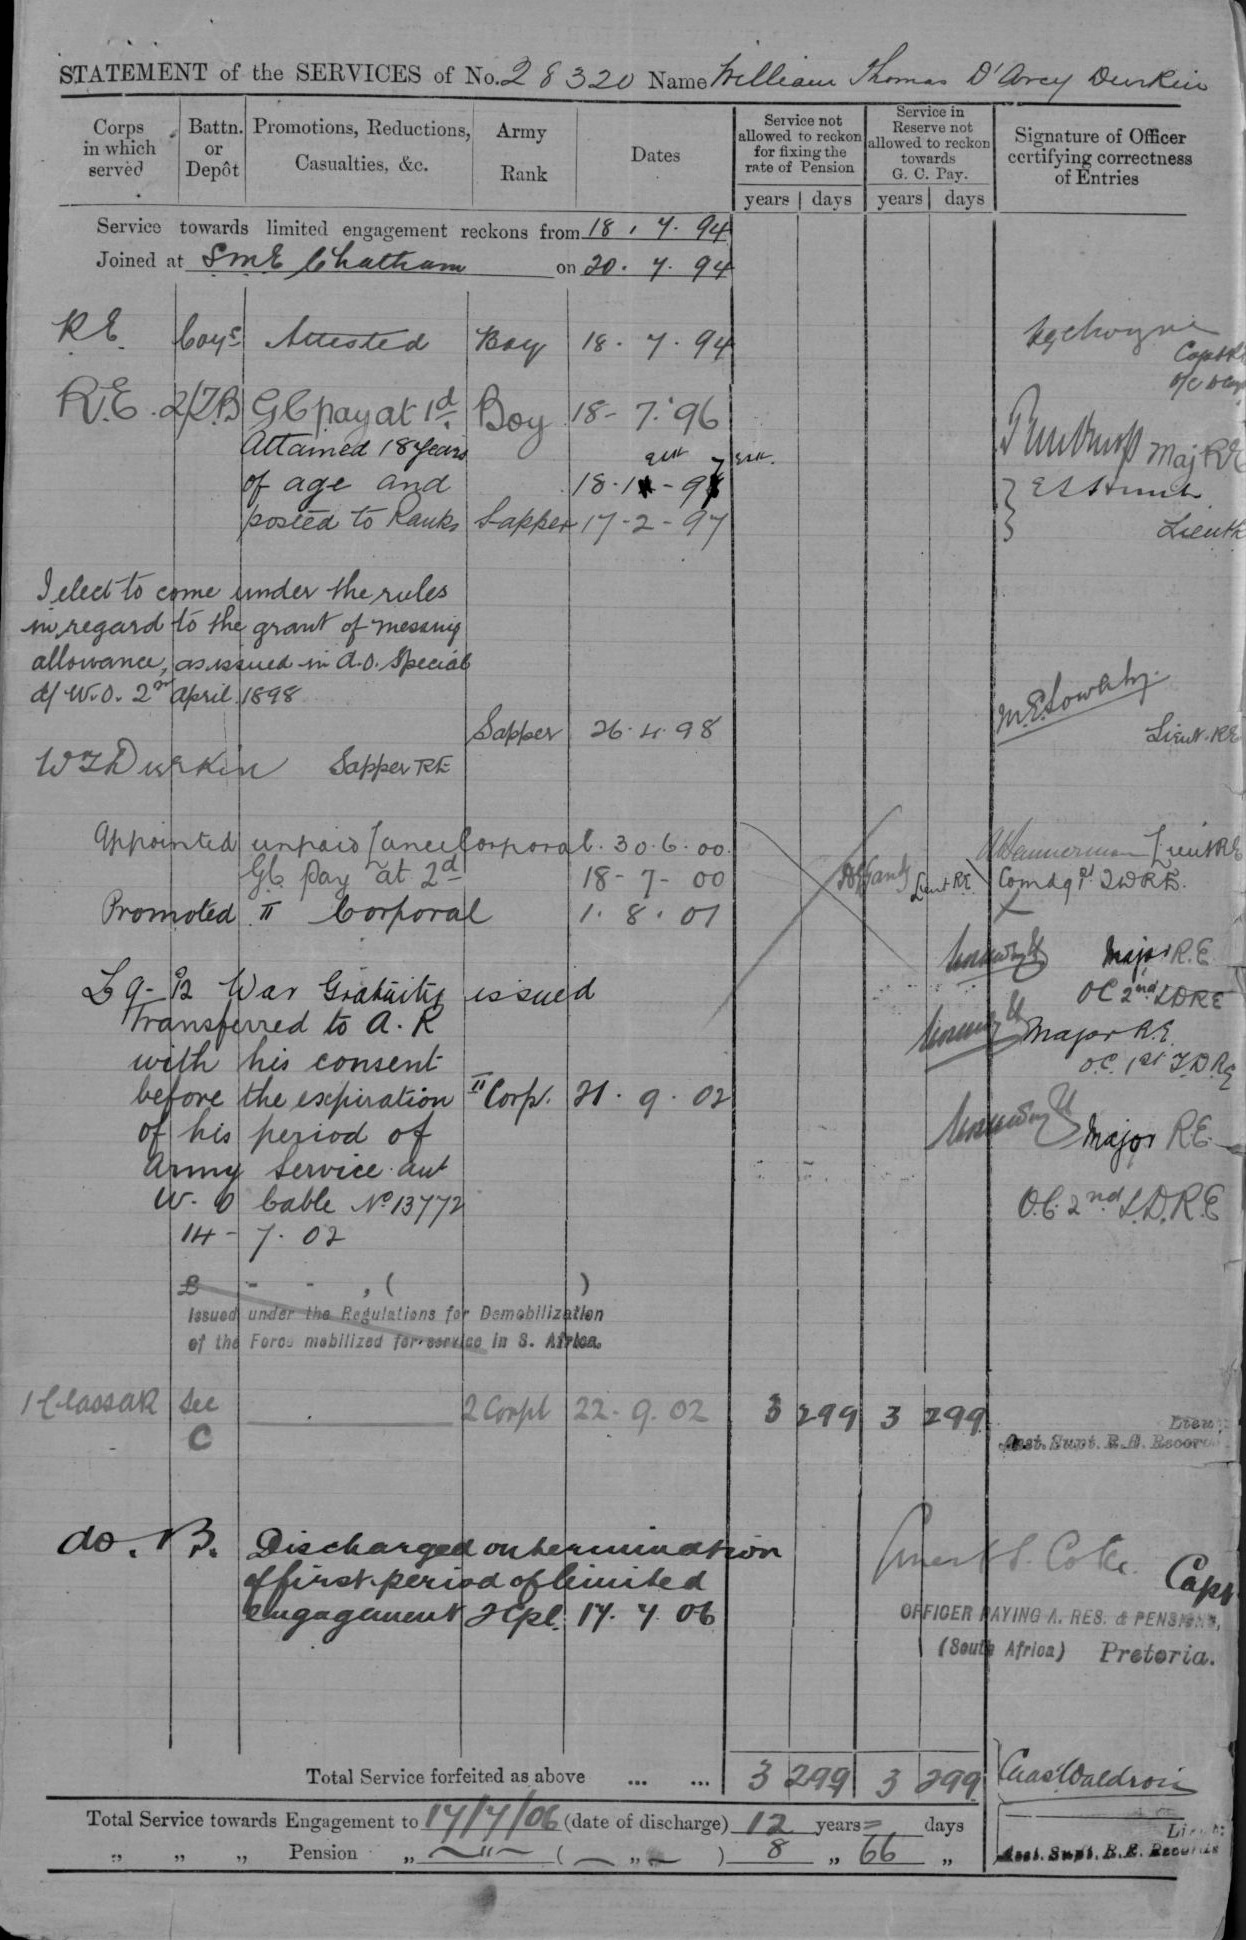 STATEMENT of the SERVICES of No. 28320 Name William Thomas D'Arcy Durkin
Corps in which served
Battn. or Depôt
Promotions, Reductions, Casualties, &c.
Army Rank
Dates
Service not allowed to reckon for fixing the rate of Pension
Service in Reserve not allowed to reckon towards G. C. Pay.
Signature of Officer certifying correctness of Entries
years days years days
Service towards limited engagement reckons from 18. 7. 94
Joined at SME Chatham on 20. 7. 94
RE Attested Boy 18. 7. 94
Capt RE
R.E. 2/T.B GC pay at 1d. Boy 18- 7. 96
Maj RE
Attained 18 years
of age and 18-1
posted to Ranks Sapper 17-2-97
Lieut
I elect to come under the rules
in regard to the grant of messing
allowance, as issued in A.O. Special
d/ W.O. 2nd April 1898
Sapper 26. 4. 98
Lieut. RE
WTDurkin Sapper RE
Appointed unpaid Lance Corporal. 30. 6. 00.
Lieut RE
GC Pay at 2d 18- 7- 00
Lieut RE
Comdg
Promoted II Corporal 1. 8. 01
Major R.E.
OC 2nd
War Gratuity issued
Transferred to A. R
Major R.E.
with his consent
O.C. 1st
before the expiration II Corp. 21. 9. 02
of his period of
Major R.E.
Army Service aut
W. O Cable No 13772
O.C. 2nd
14- 7. 02
£ - - , ( )
Issued under the Regulations for Demobilization
of the Force mobilized for service in S. Africa.
Sec C 2 Corpl 22. 9. 02 3 299 3 299
Lieut
Asst. Supt. R.E. Records
do. B. Discharged on termination
of first period of limited
engagement 2 Cpl. 17. 7. 06
Capt
OFFICER PAYING A. RES. & PENSIONS,
(South Africa) Pretoria.
Total Service forfeited as above ... ... 3 299 3 299
Chas Waldron
Total Service towards Engagement to 17/7/06 (date of discharge) 12 years = days
Lieut:
„ „ „ Pension „ —"— ( — „ — ) 8 „ 66 „
Asst. Supt. R.E. Records